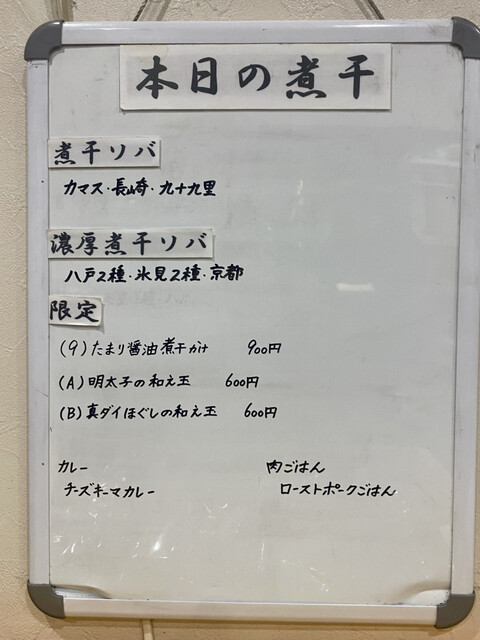 本日の煮干
煮干ソバ
カマス・長崎・九十九里
濃厚煮干ソバ
八戸2種・氷見2種・京都
限定
(9)たまり醤油煮干かけ 900円
(A)明太子の和え玉 600円
(B)真ダイほぐしの和え玉 600円
カレー 肉ごはん
チーズキーマカレー ローストポークごはん